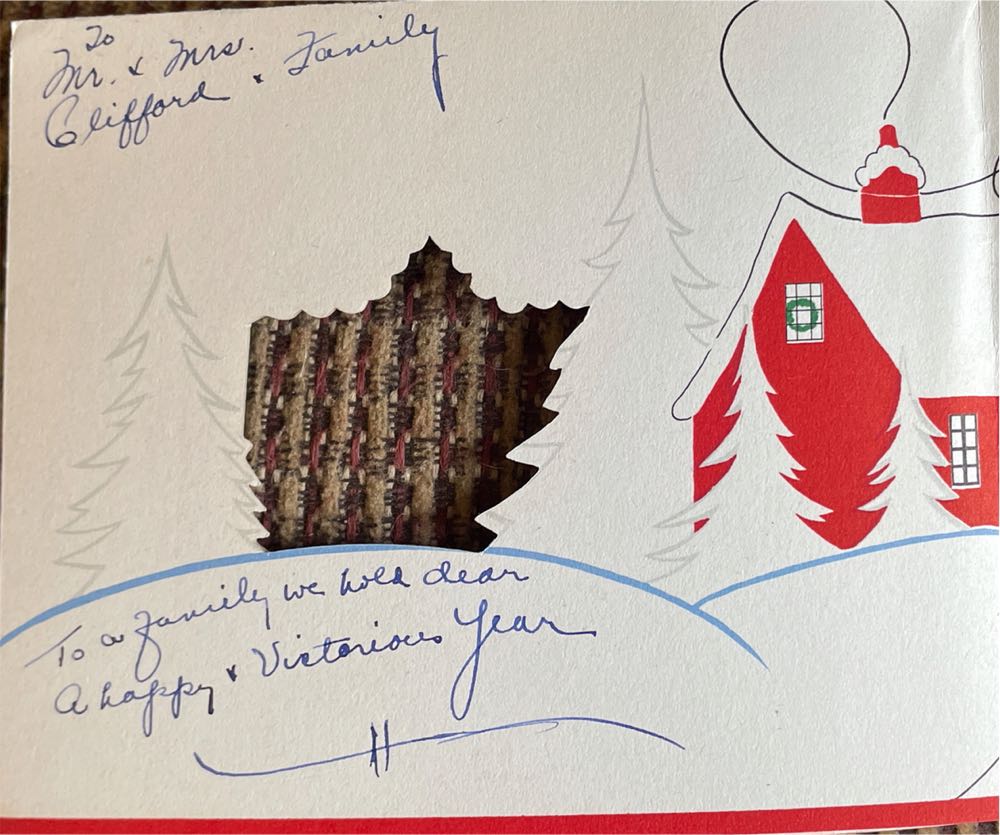 To
Mr. & Mrs.
Clifford & Family
To a family we hold dear
A happy & Victorious Year